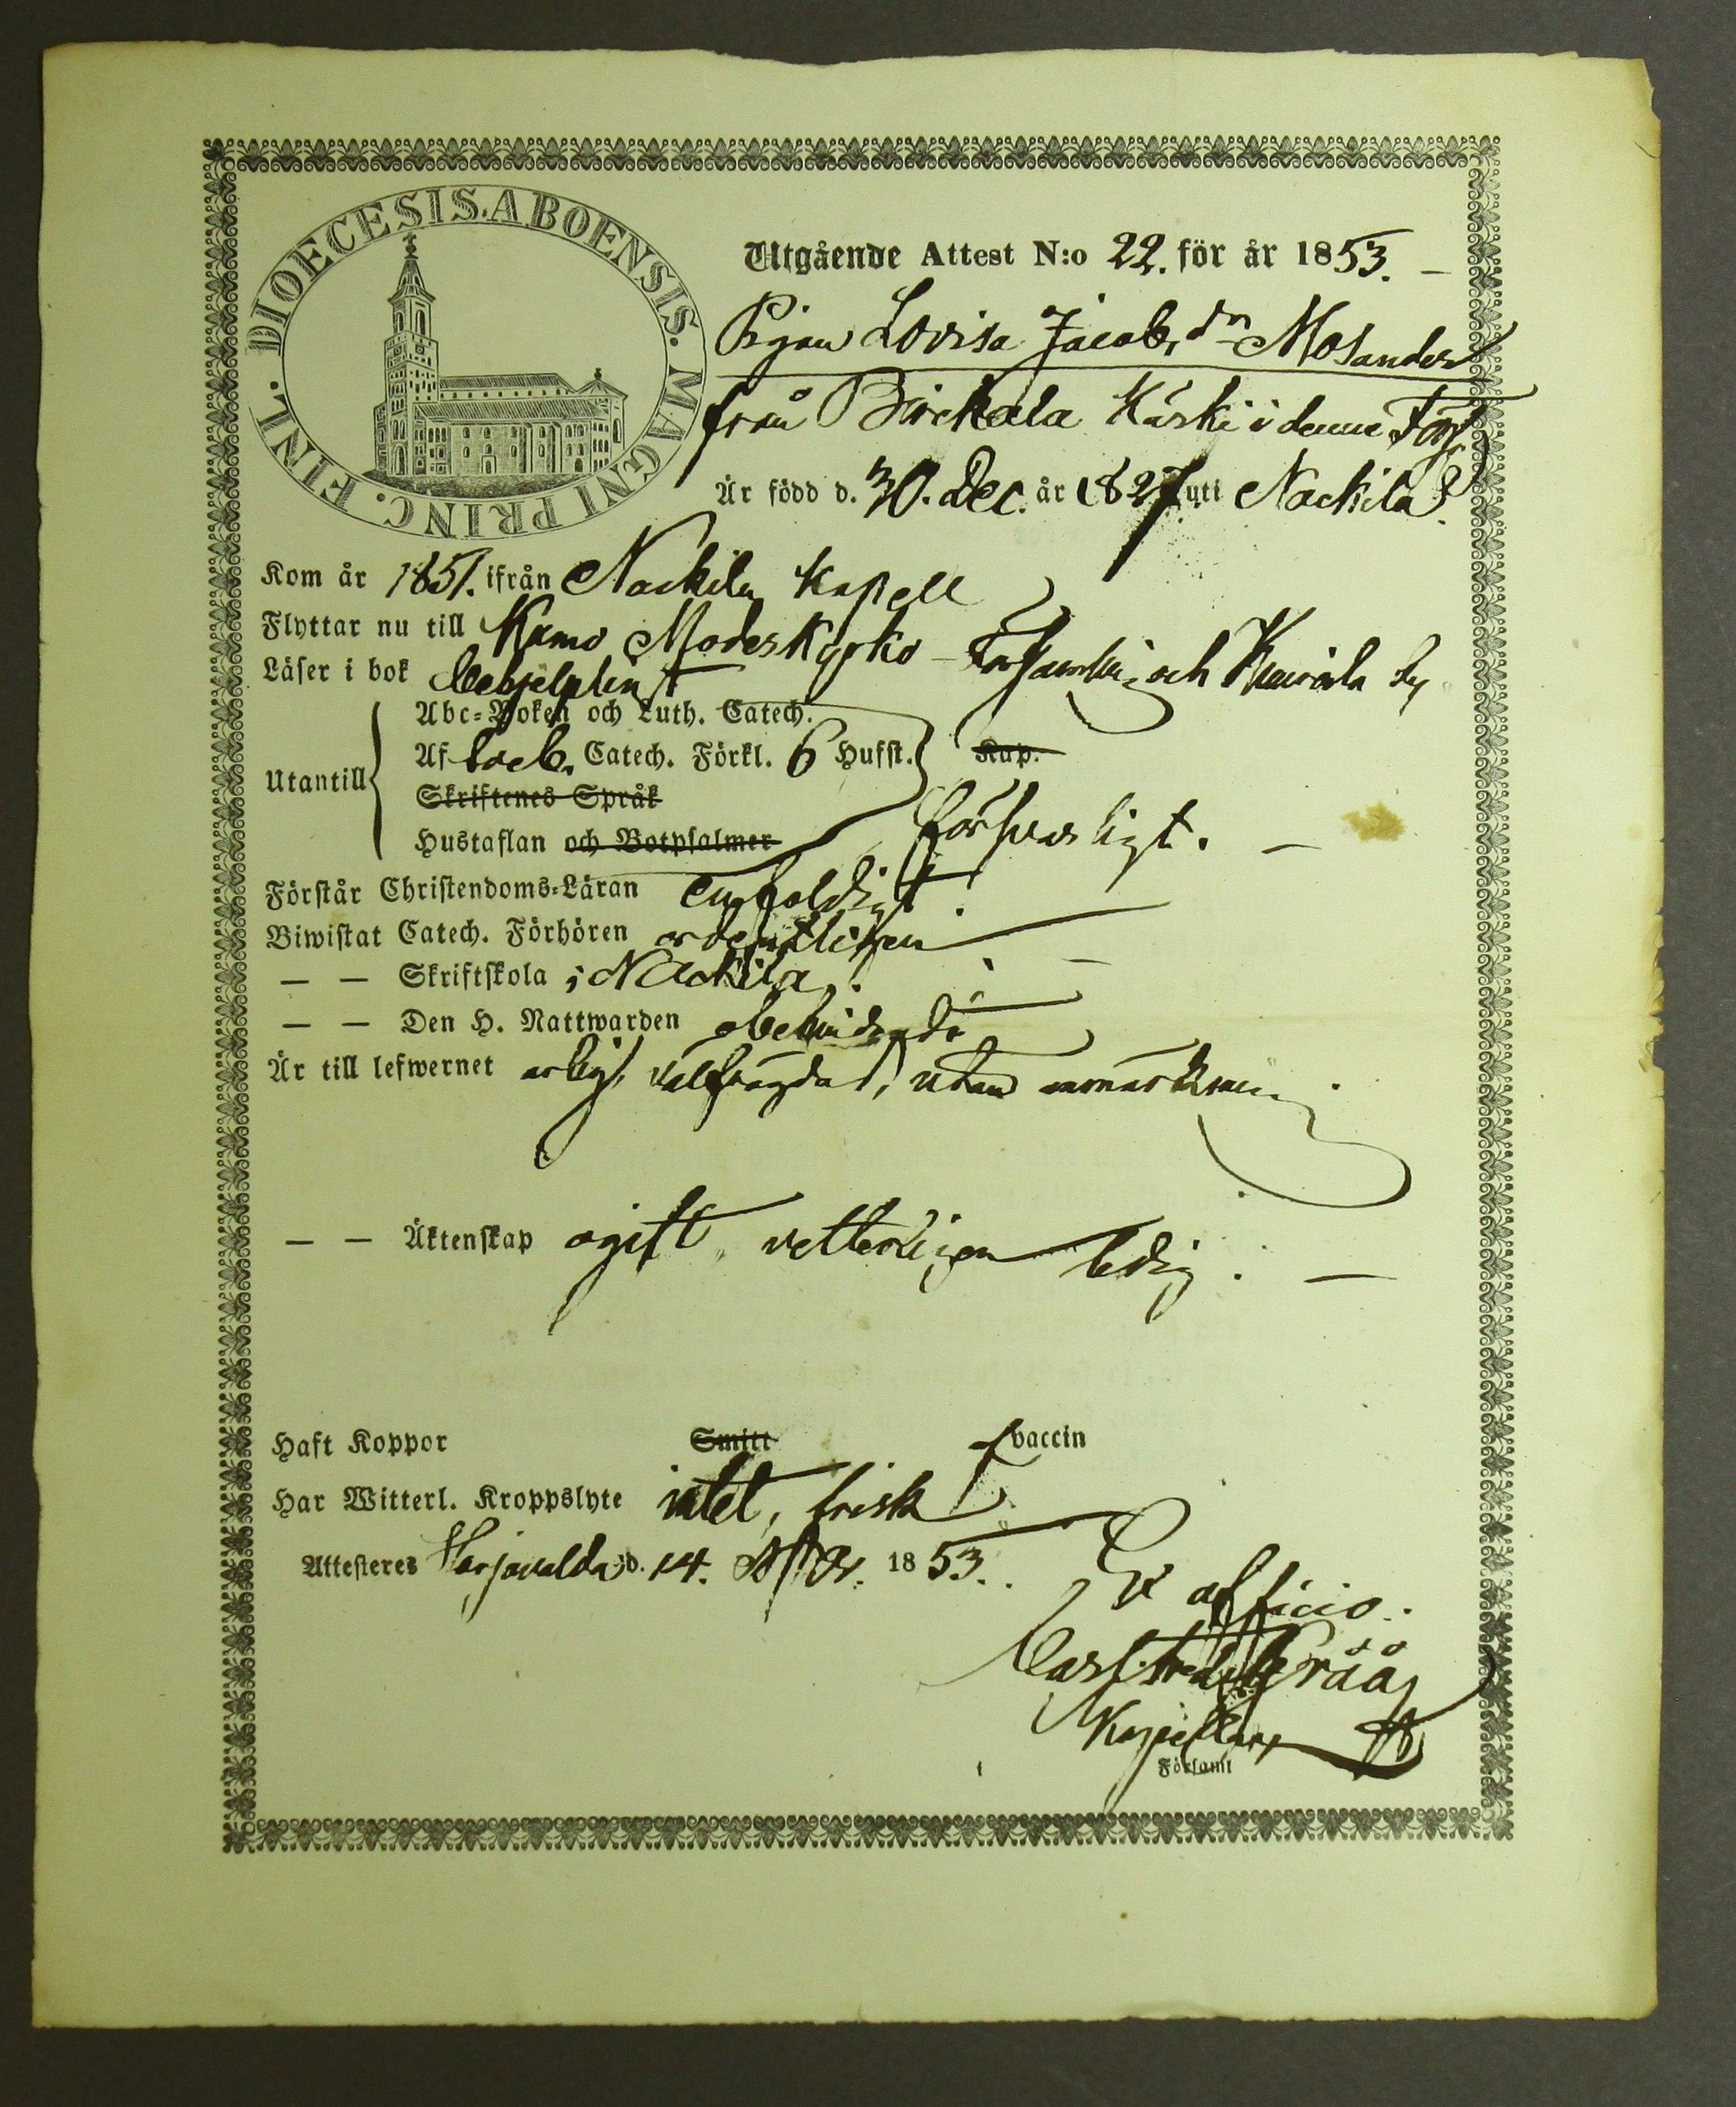 DIOECESIS. ABOENSIS. MAGNI PRINC. FINL.
Utgående Attest N:o 22. för år 1853.
Pigan Lovisa Jacobsdr Mosander
från Birckala Käski i denne Förs.
Är född d. 30. Dec. år 1827. uti Nackila?
Kom år 1851. ifrån Nackila Kapell
Flyttar nu till Kumo Moderkyrko-Församling och by
Läser i bok behjelpligt
Abc-Boken och Luth. Catech.
Utantill Af Sveb. Catech. Förkl. 6 Hufst. Kap.
Skriftenes Språk
Hustaflan och Botpsalmer försvarligt.
Förstår Christendoms-Läran enfoldigt.
Biwistat Catech. Förhören ordentligen
— — Skriftskola i Nackila.
— — Den H. Nattwarden
Är till lefwernet ärligt välfrägdad, utan anmärkning
— — Äktenskap ogift, vetterligen ledig.
Haft Koppor Smitt vaccin
Har Witterl. Kroppslyte intet, frisk
Attesteres Harjavalda d. 14. 1853.
Ex officio.
Carl Fredr.
Kapellan
Församl